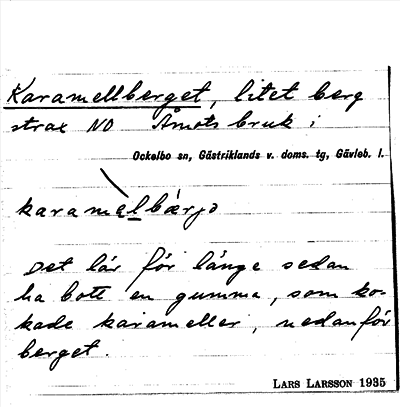 Karamellberget, litet berg
strax NO Åmots bruk i
Ockelbo sn, Gästriklands v. doms. tg, Gävleb. l.
karamelbærjə
Det lär för länge sedan
ha bott en gumma, som ko-
kade karameller, nedanför
berget.
LARS LARSSON 1935